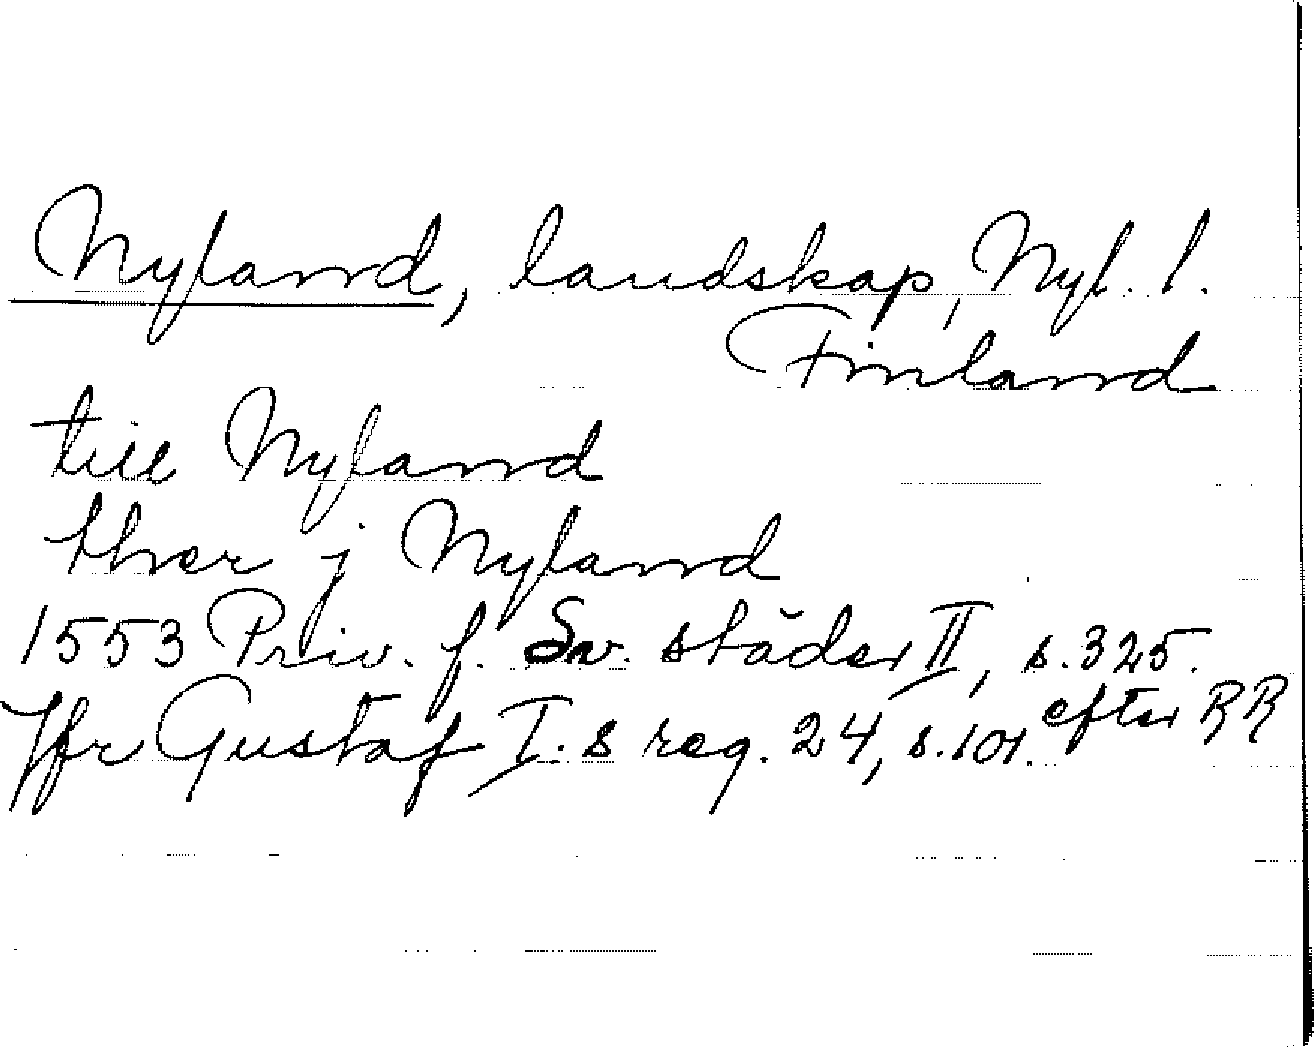 Nyland, landskap, Nyl. l.
Finland
till Nyland
ther j Nyland
1553 Priv. f. Sv. städer II, s. 325.
Jfr Gustaf I. s reg. 24, s. 101. efter RR